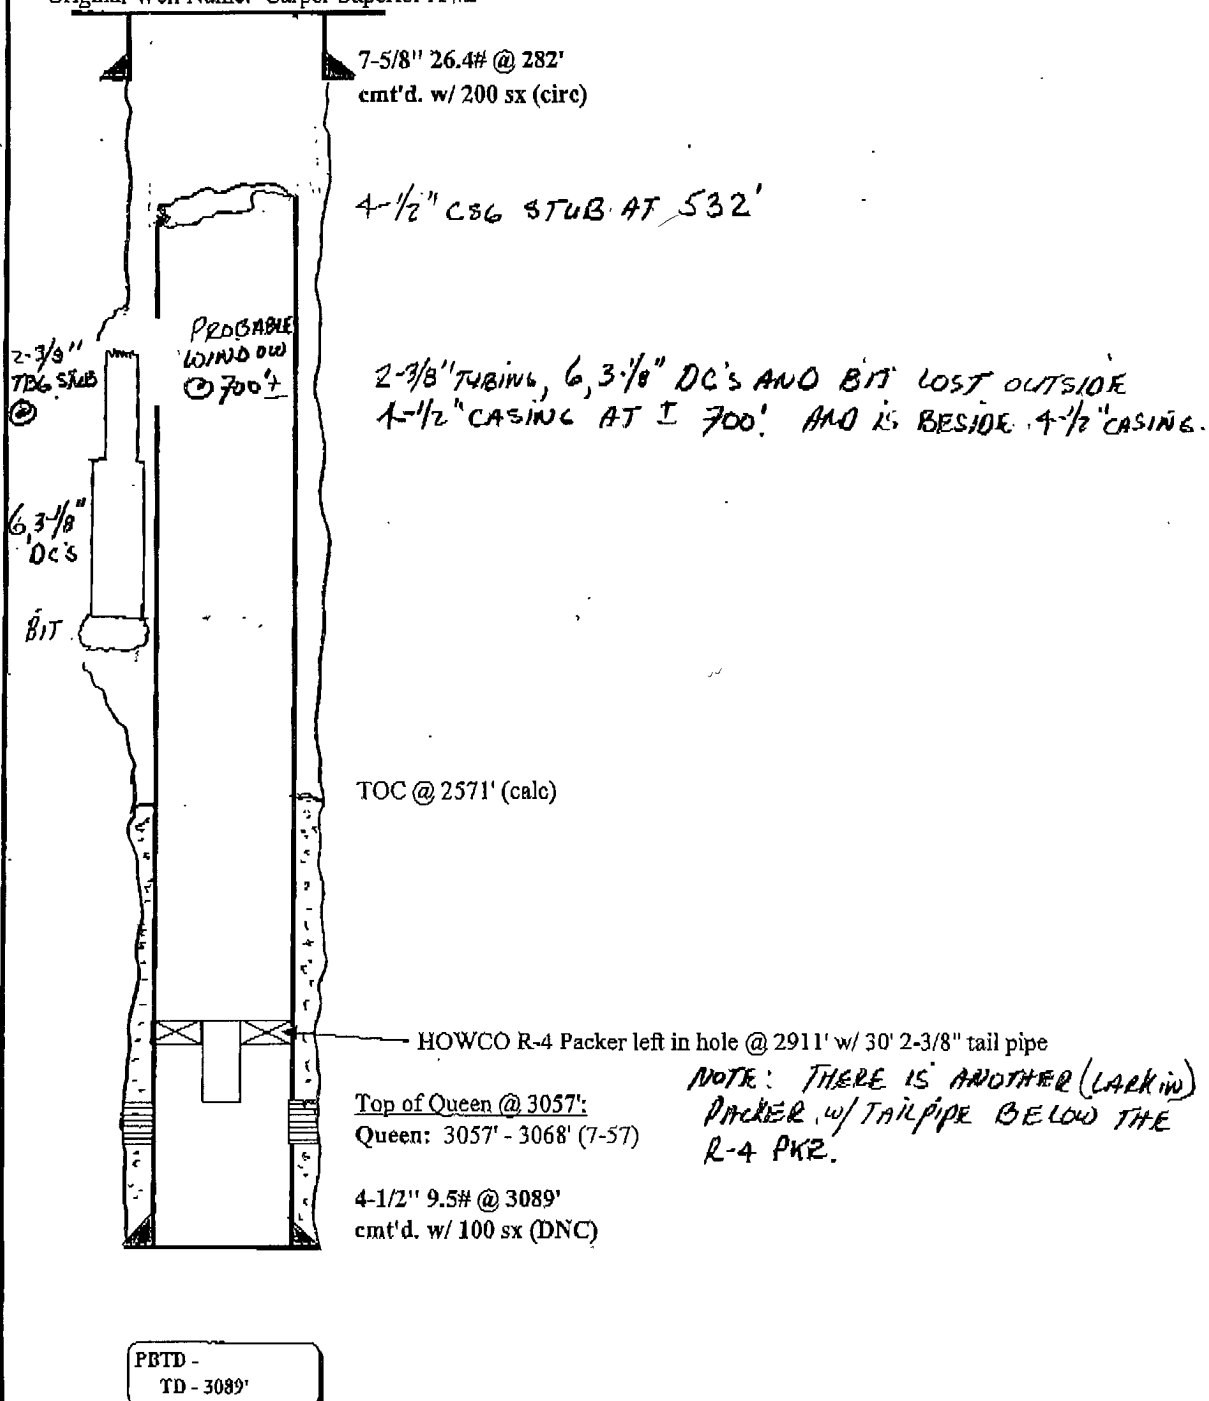 7-5/8" 26.4# @ 282'
cmt'd. w/ 200 sx (circ)
4-1/2" CSG STUB AT 532'
PROBABLE
WINDOW
@ 700'±
2-3/8"
TBG STUB
@
2-3/8" TUBING, 6, 3-1/8" DC's AND BIT LOST OUTSIDE
4-1/2" CASING AT ± 700'. AND IS BESIDE 4-1/2" CASING.
6, 3-1/8"
DC's
BIT
TOC @ 2571' (calc)
HOWCO R-4 Packer left in hole @ 2911' w/ 30' 2-3/8" tail pipe
NOTE: THERE IS ANOTHER (LARKIN)
PACKER W/ TAILPIPE BELOW THE
R-4 PKR.
Top of Queen @ 3057':
Queen: 3057' - 3068' (7-57)
4-1/2" 9.5# @ 3089'
cmt'd. w/ 100 sx (DNC)
PBTD -
TD - 3089'